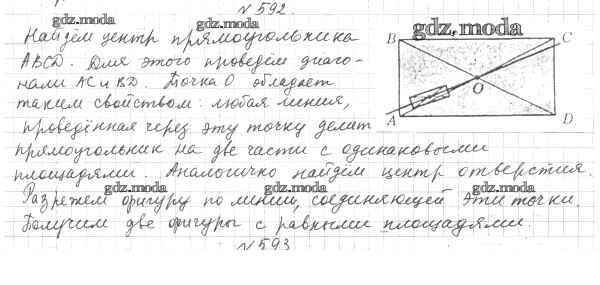 №592.
gdz.moda
gdz.moda
gdz.moda
Найдём центр прямоугольника
ABCD. Для этого проведём диаго-
нали AC и BD. Точка O обладает
таким свойством: любая линия,
проведённая через эту точку делит
прямоугольник на две части с одинаковыми
площадями. Аналогично найдём центр отверстия.
Разрежем фигуру по линии, соединяющей эти точки.
Получим две фигуры с равными площадями.
№593
B
C
O
A
D
gdz.moda
gdz.moda
gdz.moda
gdz.moda